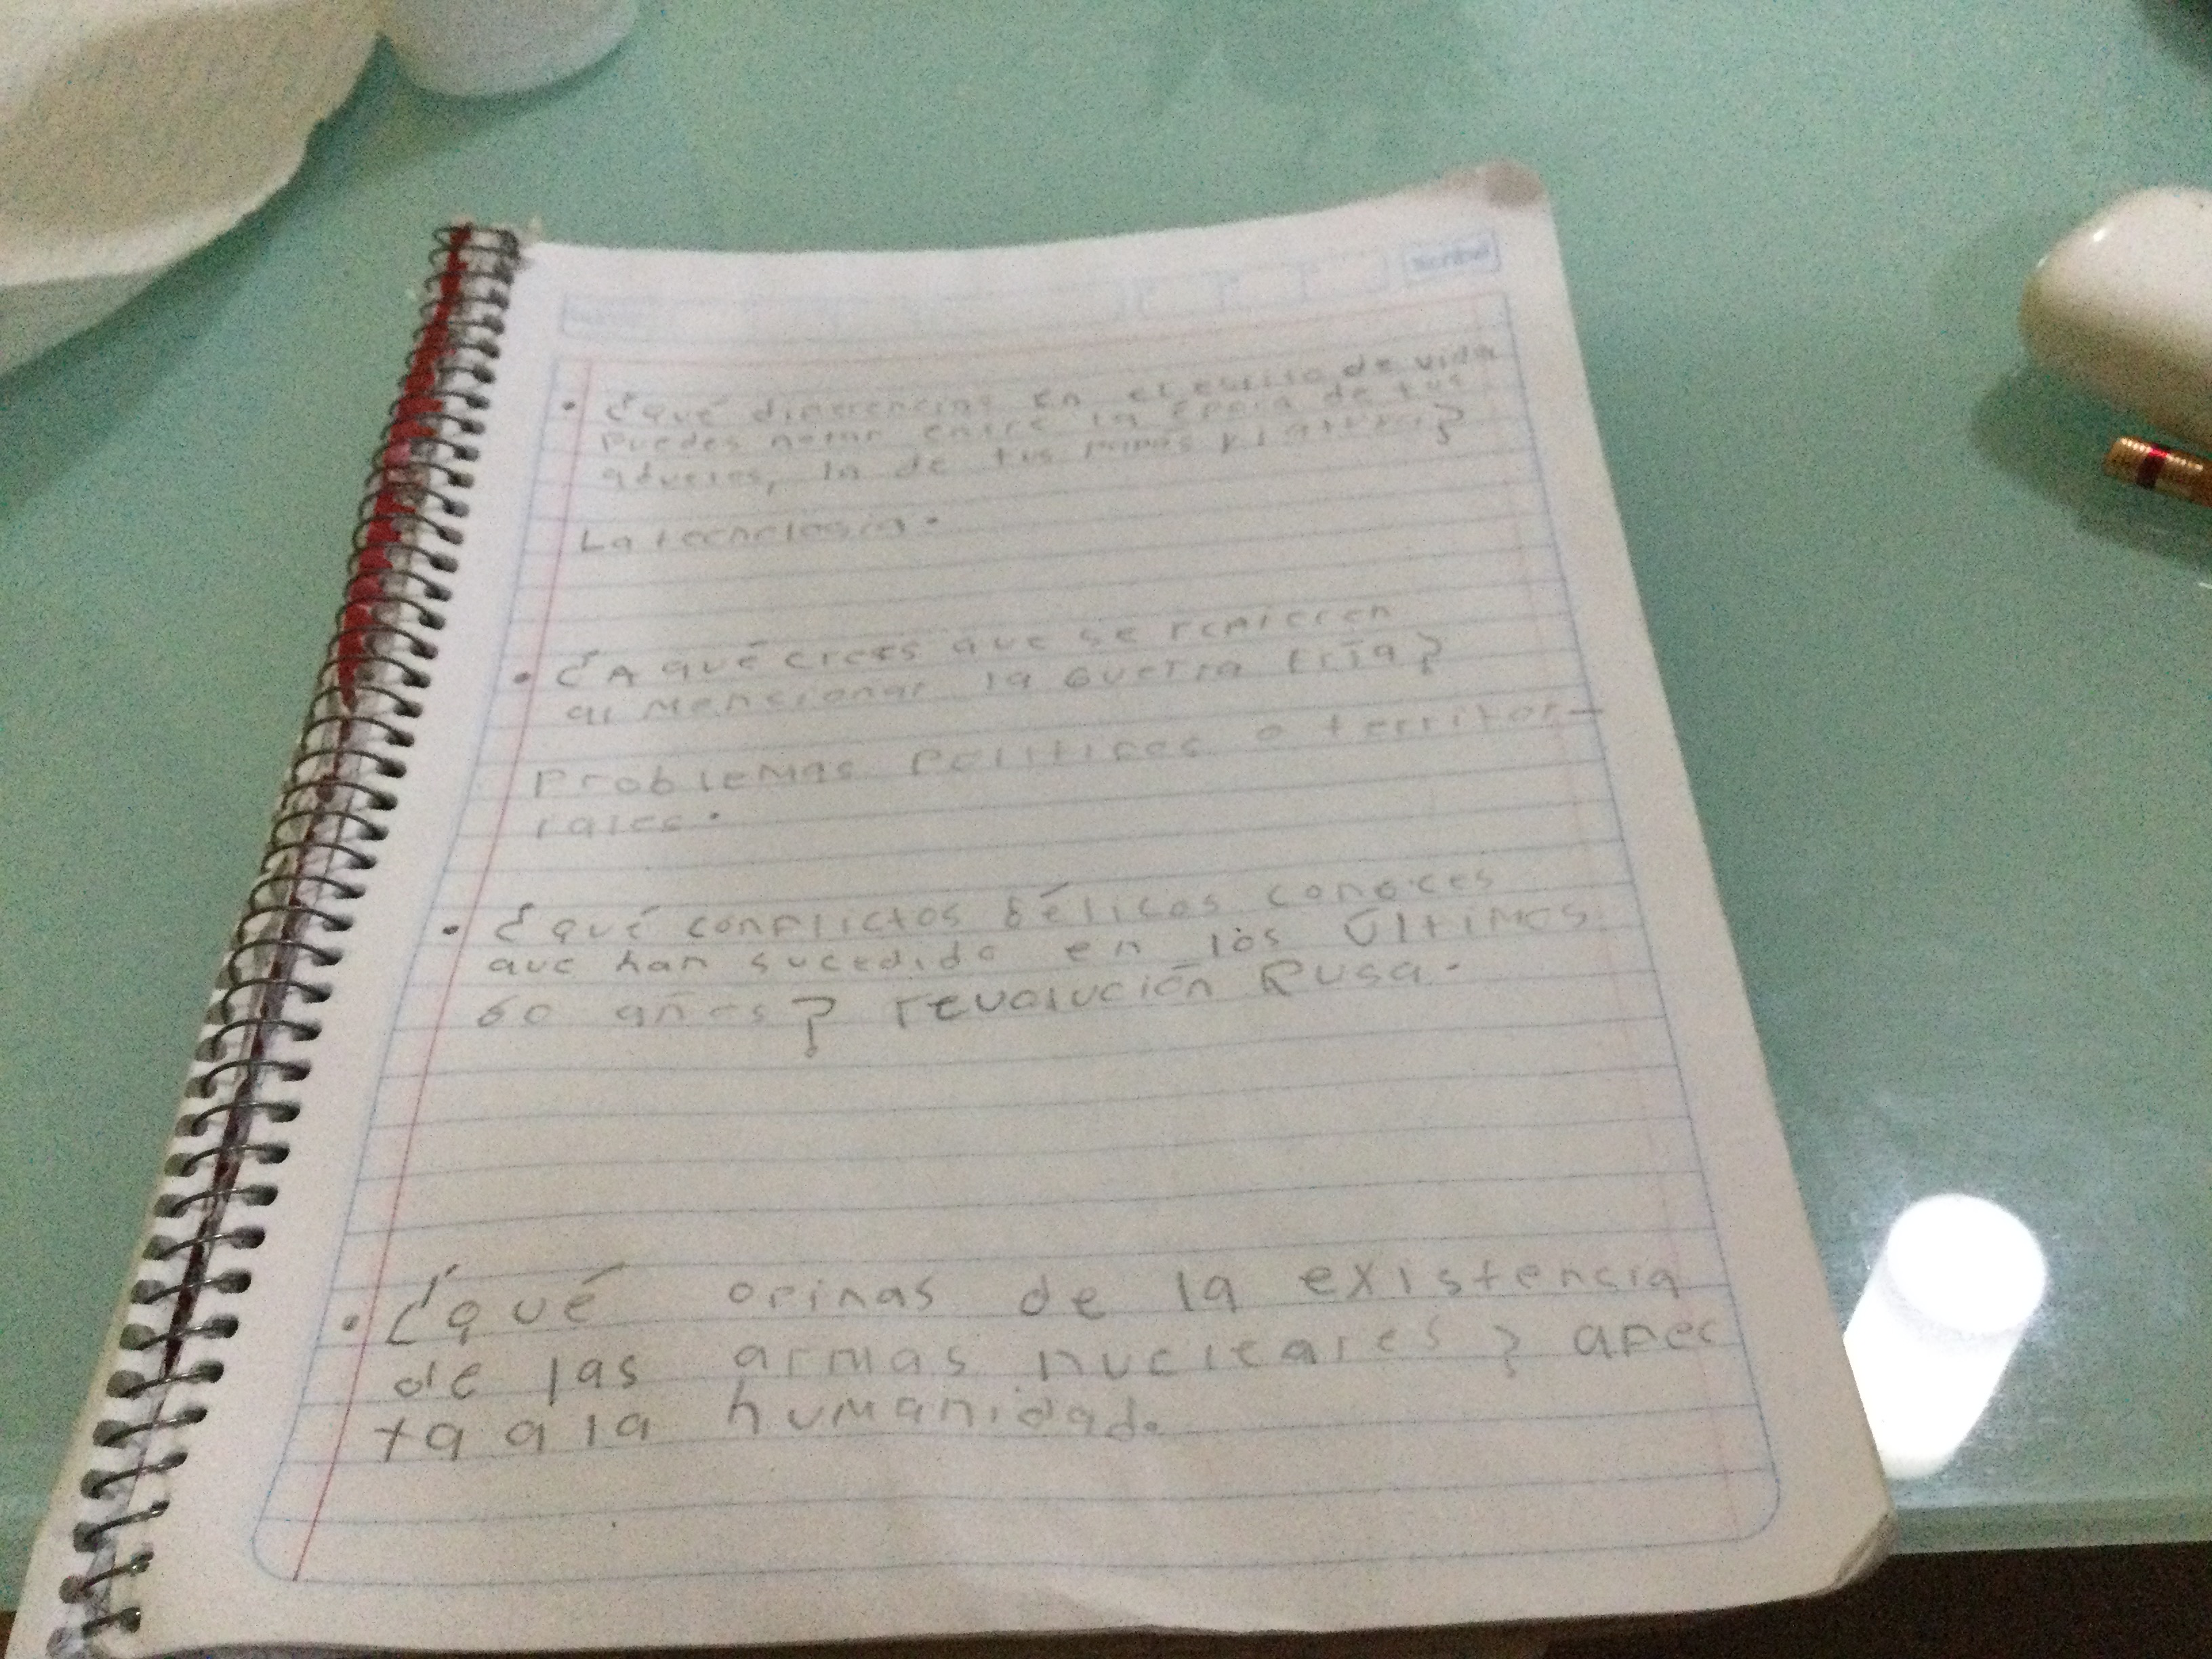 • ¿qué diferencias en el estilo de vida
Puedes notar entre la época de tus
abuelos, la de tus papás y la tuya?
La tecnología.
• ¿A qué crees que se refieren
al Mencionar la Guerra Fría?
Problemas Políticos o territor-
iales.
• ¿qué conflictos bélicos conoces
que han sucedido en los últimos
60 años? revolución Rusa.
• ¿qué opinas de la existencia
de las armas nucleares? afec
ta a la humanidad.